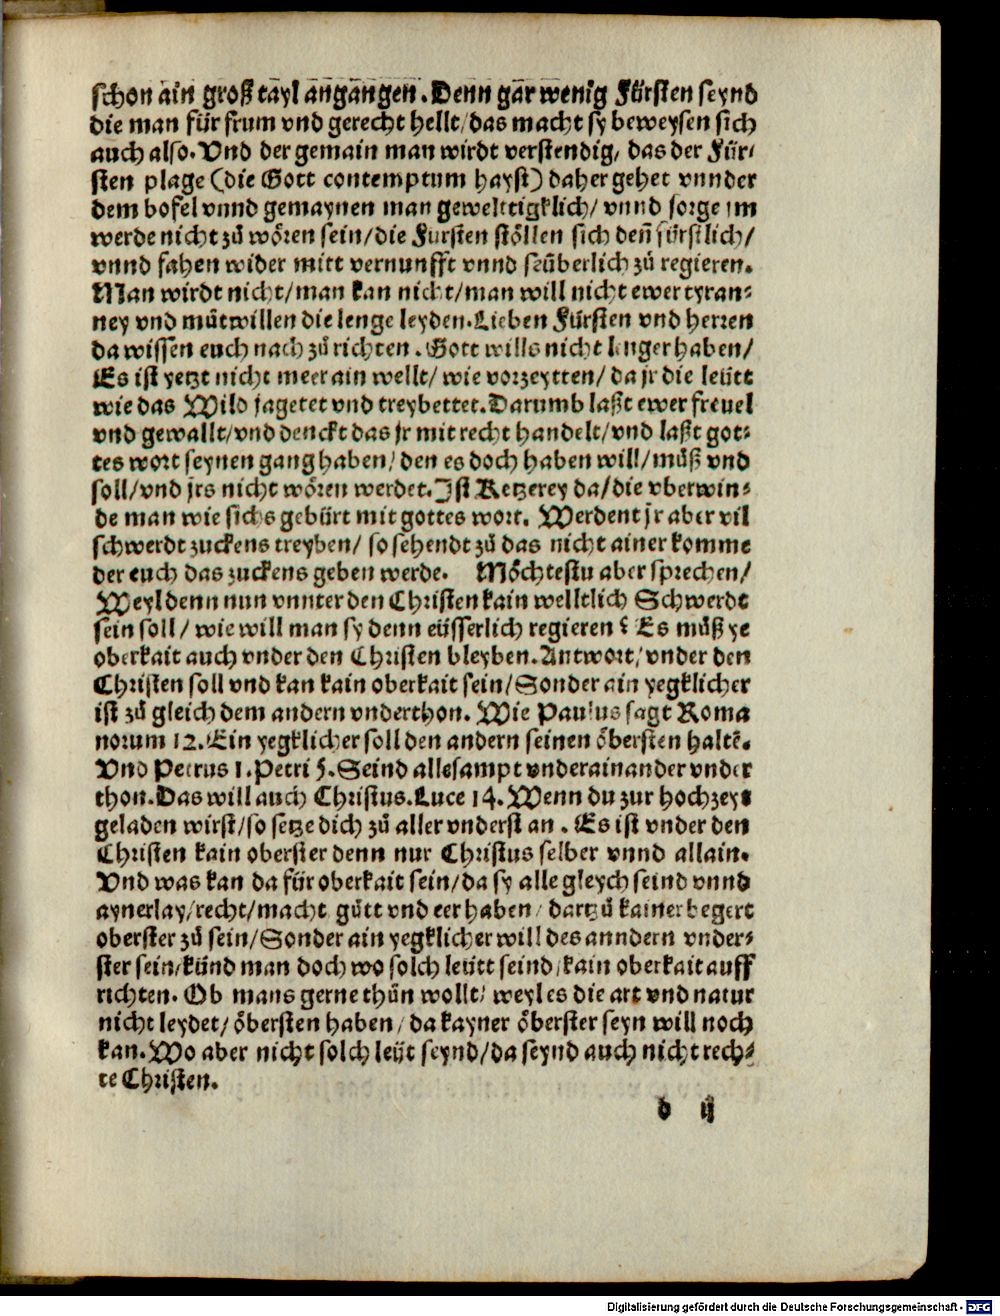 schon ain groß tayl angangen. Denn gar wenig Fürsten seynd
die man für frum vnd gerecht hellt/das macht sy beweysen sich
auch also. Vnd der gemain man wirdt verstendig, das der Für⸗
sten plage (die Gott contemptum hayst) daher gehet vnnder
dem bofel vnnd gemaynen man geweltigklich/ vnnd sorge im
werde nicht zů wören sein/die Fursten stöllen sich deñ fürstlich/
vnnd fahen wider mitt vernunfft vnnd seüberlich zů regieren.
Man wirdt nicht/man kan nicht/man will nicht ewer tyran⸗
ney vnd mütwillen die lenge leyden. Lieben Fürsten vnd herren
da wissen euch nach zů richten. Gott wills nicht lenger haben/
Es ist yetzt nicht meer ain wellt/ wie vorzeytten/ da jr die leütt
wie das Wild jagetet vnd treybettet. Darumb laßt ewer freuel
vnd gewallt/vnd denckt das jr mit recht handelt/vnd laßt got⸗
tes wort seynen gang haben/ den es doch haben will/müß vnd
soll/vnd jrs nicht wören werdet. Ist Ketzerey da/die vberwin⸗
de man wie sichs gebürt mit gottes wort. Werdent jr aber vil
schwerdt zuckens treyben/ so sehendt zů das nicht ainer komme
der euch das zuckens geben werde. Möchtestu aber sprechen/
Weyl denn nun vnnter den Christen kain welltlich Schwerdt
sein soll/ wie will man sy denn eüsserlich regieren? Es můß ye
oberkait auch vnder den Christen bleyben. Antwort/ vnder den
Christen soll vnd kan kain oberkait sein/Sonder ain yegklicher
ist zů gleich dem andern vnderthon. Wie Paulus sagt Roma
norum 12. Ein yegklicher soll den andern seinen öbersten haltẽ.
Vnd Petrus 1. Petri 5. Seind allesampt vnderainander vnder
thon. Das will auch Christus. Luce 14. Wenn du zur hochzeyt
geladen wirst/so setze dich zů aller vnderst an. Es ist vnder den
Christen kain oberster denn nur Christus selber vnnd allain.
Vnd was kan da für oberkait sein/da sy alle gleych seind vnnd
aynerlay/recht/macht gütt vnd eer haben/ dartzů kainer begert
oberster zů sein/Sonder ain yegklicher will des anndern vnder⸗
ster sein/künd man doch wo solch leütt seind/kain oberkait auff
richten. Ob mans gerne thün wollt/ weyl es die art vnd natur
nicht leydet/ öbersten haben/ da kayner öberster seyn will noch
kan. Wo aber nicht solch leüt seynd/da seynd auch nicht rech⸗
te Christen.
d ij
Digitalisierung gefördert durch die Deutsche Forschungsgemeinschaft - DFG